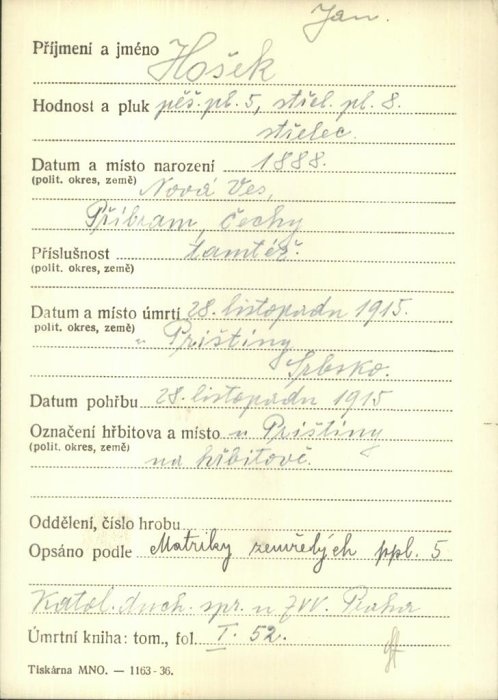 Jan.
Příjmení a jméno Hošek
Hodnost a pluk pěš. pl. 5, střel. pl. 8.
střelec.
Datum a místo narození 1888.
(polit. okres, země) Nová Ves,
Příbram, Čechy
Příslušnost tamtéž.
(polit. okres, země)
Datum a místo úmrtí 28. listopadu 1915.
polit. okres, země) u Prištiny
Srbsko.
Datum pohřbu 28. listopadu 1915
Označení hřbitova a místo u Prištiny
(polit. okres, země) na hřbitově.
Oddělení, číslo hrobu
Opsáno podle Matriky zemřelých ppl. 5
Katol. duch. spr. u ZVV. Praha
Úmrtní kniha: tom., fol. I. 52.
Tiskárna MNO. — 1163-36.